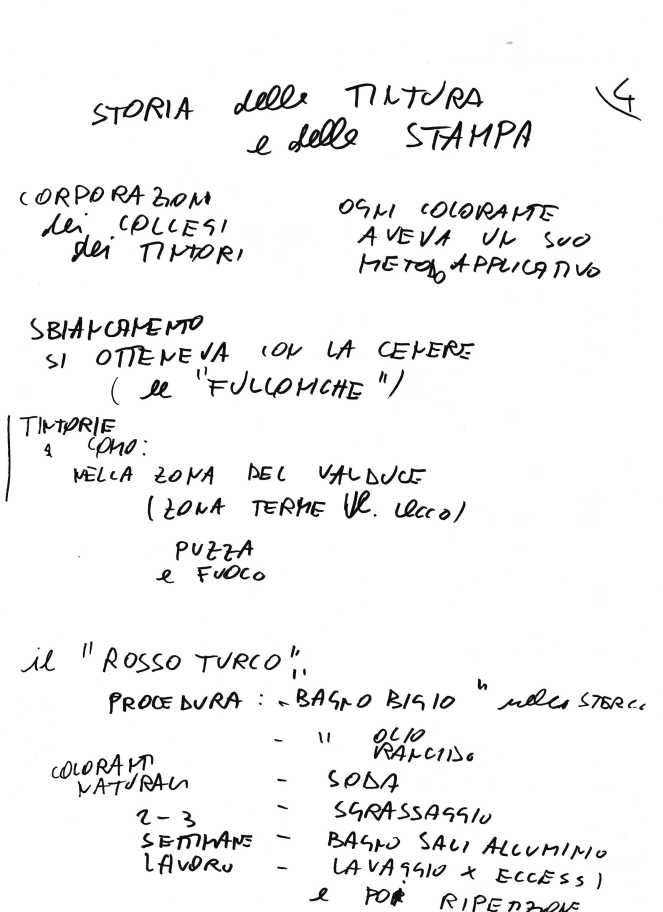 STORIA delle TINTURA
e delle STAMPA
4
CORPORAZIONI
dei COLLEGI
dei TINTORI
OGNI COLORANTE
AVEVA UN SUO
METODO APPLICATIVO
SBIANCAMENTO
SI OTTENEVA CON LA CENERE
( le "FULLONICHE ")
TINTORIE
a COMO:
NELLA ZONA DEL VALDUCE
(ZONA TERME V. Lecco)
PUZZA
e FUOCO
il "ROSSO TURCO":
PROCEDURA : - BAGNO BIGIO " nello STERCO
- " OLIO
RANCIDO
COLORANTI
NATURALI
- SODA
- SGRASSAGGIO
2-3
SETTIMANE
LAVORO
- BAGNO SALI ALLUMINIO
- LAVAGGIO X ECCESSI
e POI RIPETIZIONE